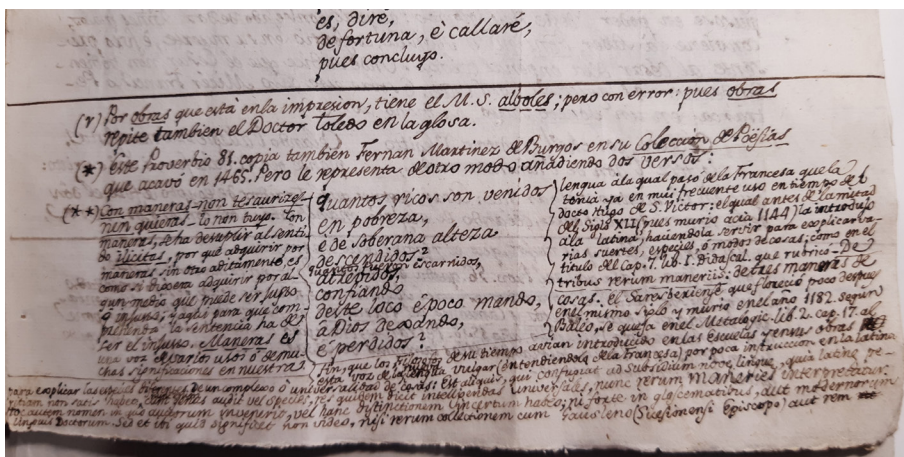 es, diré,
de fortuna, è callaré,
pues concluyo.
(r) Por obras que está en la impresion, tiene el M.S. alboles; pero con error: pues obras
repite tambien el Doctor Toledo en la glosa.
(*) Este Proverbio 81. copia tambien Fernan Martinez de Burgos en su Coleccion de Poësias
que acavó en 1465. Pero le representa de otro modo añadiendo dos versos:
(**) Con maneras non tesaurizel-
nin quieras lo non tuyo. Con
maneras, se ha de suplir al senti-
do ilicitas, por que adquirir por
maneras sin otro aditamento, es
como si dixera adquirir por al-
gun medio que puede ser justo
ò injusto; y aqui para que com-
la sentencia ha de
ser el injusto. Maneras es
una voz de varios usos ò de mu-
chas significaciones en nuestra
quantos ricos son venidos
en pobreza,
è de soberana alteza
descendidos?
quantos fueron escarnidos,
atrepidos,
confiando
deste loco è poco mando,
a Dios dexando,
è perdidos?
lengua á la qual pasó de la Francesa que la
tonia ya en mui frecuente uso en tiempo de l
docto Hugo de S. Victor: el qual antes de la mitad
del Siglo XII (pues murio acia 1144) la introdujo
á la latina, haciendola servir para explicar va-
rias suertes, especies, ò modos de cosas; como en el
titulo del Cap. 7. lib. I. Didascal. que rubricó: De
tribus rerum maneriis: de tres maneras de
cosas. el Saresberiense, que florecio poco despues
en el mismo siglo y murio en el año 1182. segun
Baleo, se quefa en el Metalogic. lib. 2. cap. 17. al
fin, que los Filosofos de su tiempo avian introducido en las escuelas y en sus obras
esta voz de la vulgar (entendiendola de la Francesa) por poca intruccion en la latina
para explicar las especies de un complexo ò universalidad de cosas: Est aliquis, qui confugiat ad subsidium novę linguę, quia latinę pe-
ritiam non satis habet, audit vel species, res quidem dicit intelligendas universales, nunc rerum maneries interpretatur.
Hoc autem nomen in quo auctorum invenerit, vel hanc distinctionem incertum habeo; ni forte in glocematibus, aut modernorum
linguis Doctorum. Sed et ibi quid significet non video, nisi rerum collectionem cum Gausleno (Suessionensi Episcopo) aut rem